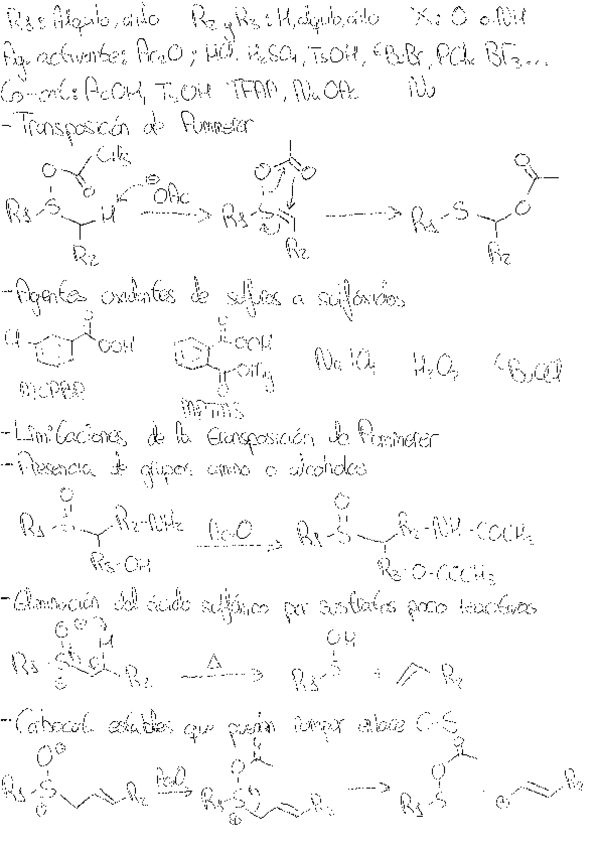 R1: Alquilo, arilo R2 y R3: H, alquilo, arilo X: O o NH
Ag. activantes: Ac2O, HCl, H2SO4, TsOH, tBuBr, PCl3, BF3...
Co-cat: AcOH, TsOH TFAA, NaOAc
- Transposición de Pummerer
CH3
O O O O O
R1 S H ⊖OAc R1 S R1 S O
R2 R2 R2
- Agentes oxidantes de sulfuros a sulfóxidos
Cl OOH OOH NaIO4 H2O2 tBuOCl
MCPBA
- Limitaciones de la transposición de Pummerer
- Presencia de grupos amino o alcoholes
O O
R1 S R2-NH2 Ac2O R1 S R2-NH-COCH3
R3-OH R3-O-COCH3
- Eliminación del ácido sulfénico por sustratos poco reactivos
O H OH
R1 S R2 Δ R1 S + R2
- Carbocat. estables que puedan romper enlace C-S
O O O
R1 S R2 Ac2O R1 S R2 R1 S R2